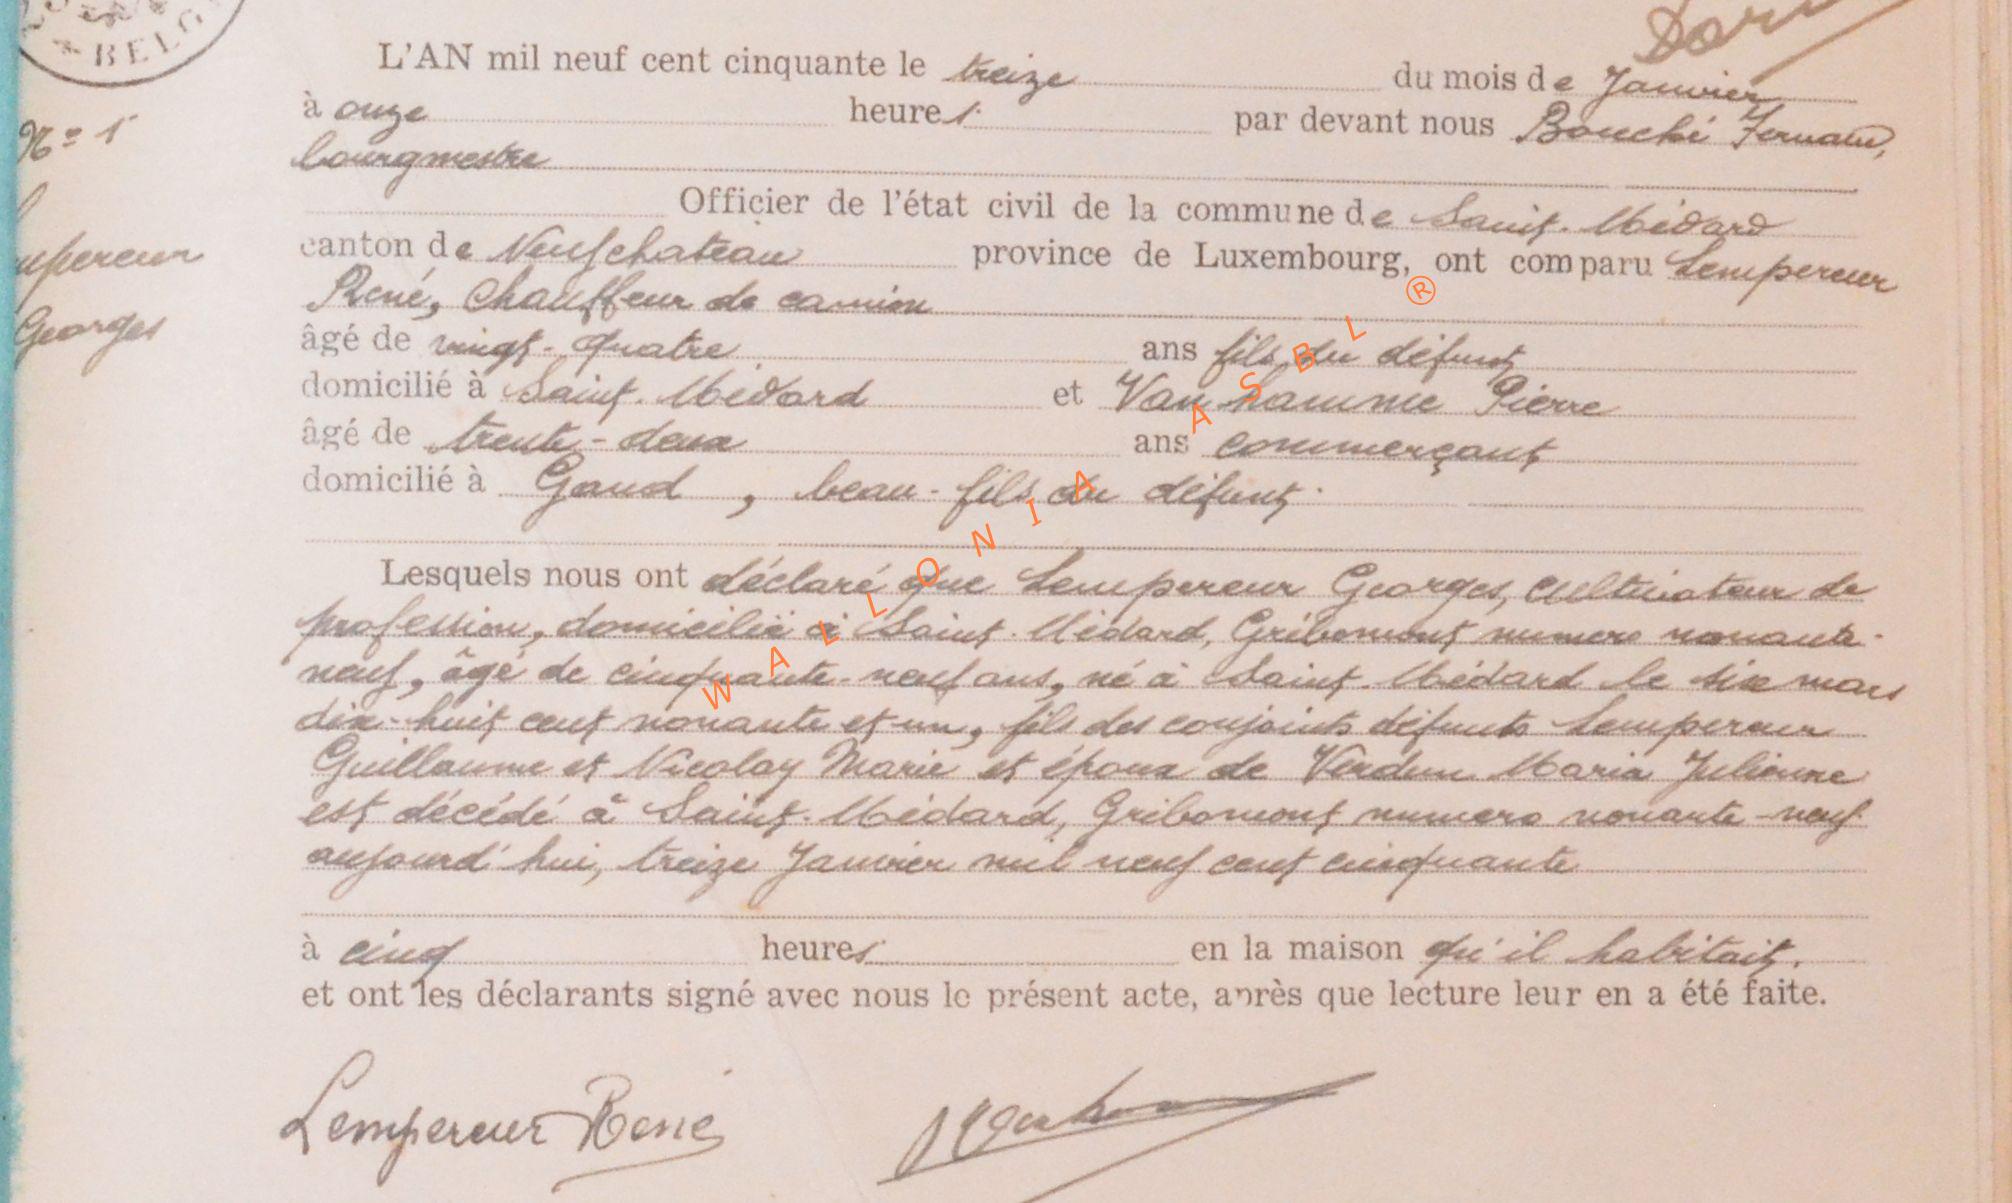 BELG
L'AN mil neuf cent cinquante le treize du mois de Janvier
à onze heures par devant nous Bouché Fernand,
bourgmestre
Officier de l'état civil de la commune de Saint-Médard
canton de Neufchateau province de Luxembourg, ont comparu Lempereur
René, chauffeur de camion
âgé de vingt-quatre ans fils du défunt
domicilié à Saint-Médard et Van hamme Pierre
âgé de trente-deux ans commerçant
domicilié à Gand, beau-fils du défunt.
Lesquels nous ont déclaré que Lempereur Georges, cultivateur de
profession, domicilié à Saint-Médard, Gribomont numero nonante-
neuf, âgé de cinquante-neuf ans, né à Saint-Médard le six mars
dix-huit cent nonante et un, fils des conjoints défunts Lempereur
Guillaume et Nicolay Marie et époux de Verdun Maria Julienne
est décédé à Saint-Médard, Gribomont numero nonante-neuf
aujourd'hui, treize Janvier mil neuf cent cinquante
à cinq heures en la maison qu'il habitait.
et ont les déclarants signé avec nous le présent acte, après que lecture leur en a été faite.
Lempereur René
N° 1
mpereur
Georges
WALLONIA ASBL ®